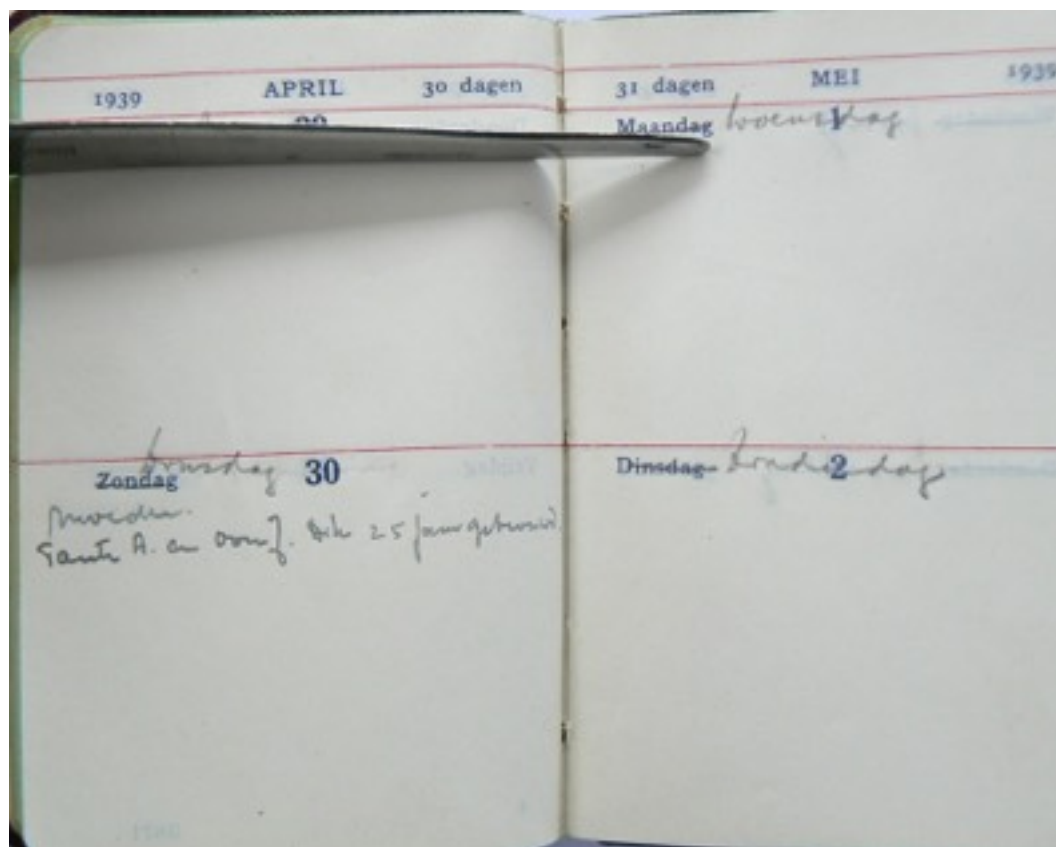 1939 APRIL 30 dagen
Zondag dinsdag 30
Moeder.
Tante A. en Oom J. Dik 25 jaar getrouwd.
31 dagen MEI 1939
Maandag woensdag 1
Dinsdag Donderdag 2